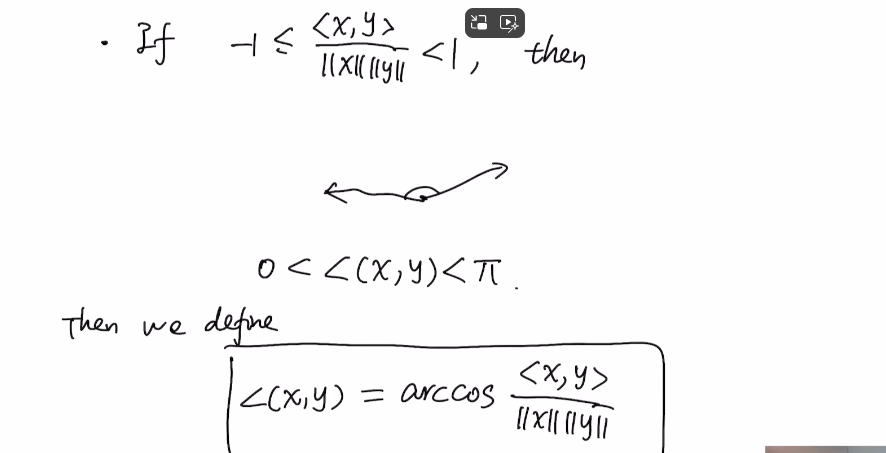 · If -1 ≤ <x, y> / ||x|| ||y|| < 1, then
0 < ∠(x, y) < π.
Then we define
∠(x, y) = arccos <x, y> / ||x|| ||y||